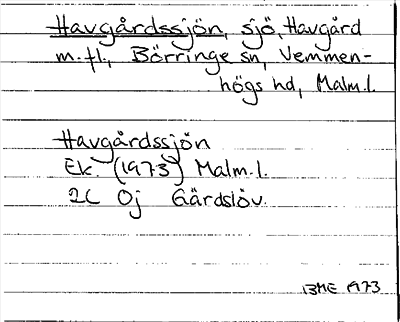 Havgårdssjön, sjö, Havgård
m.fl., Börringe sn, Vemmen-
högs hd, Malm.l.
Havgårdssjön
Ek. (1973) Malm.l.
2C 0j Gärdslöv
BME 1973